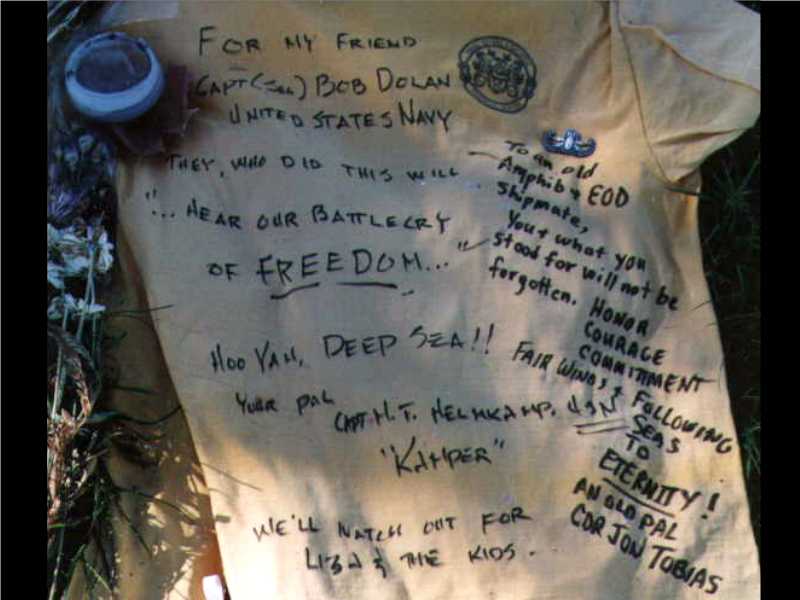 FOR MY FRIEND
CAPT (SEL) BOB DOLAN
UNITED STATES NAVY
THEY, WHO DID THIS WILL
"... HEAR OUR BATTLECRY
OF FREEDOM..."
HOO YAH, DEEP SEA!!
YOUR PAL
CAPT. H.T. HELMKAMP, USN
"KAMPER"
WE'LL WATCH OUT FOR
LISA & THE KIDS.
To an old
Amphib & EOD
Shipmate,
You & what you
stood for will not be
forgotten.
HONOR
COURAGE
COMMITMENT
FAIR WINDS & FOLLOWING
SEAS
TO
ETERNITY!
AN OLD PAL
CDR JON TOBIAS